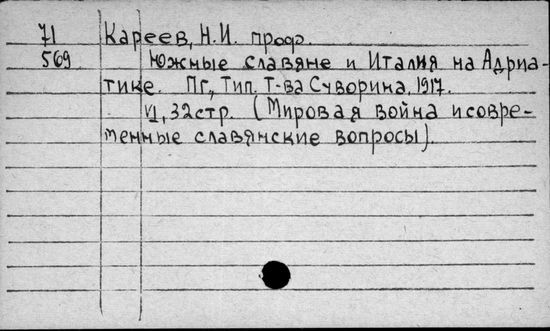 71 Кареев, Н.И. проф.
569 Южные славяне и Италия на Адриа-
тике. Пг., Тип. Т-ва Суворина, 1917.
VI, 32 стр. (Мировая война и совре-
менные славянские вопросы).